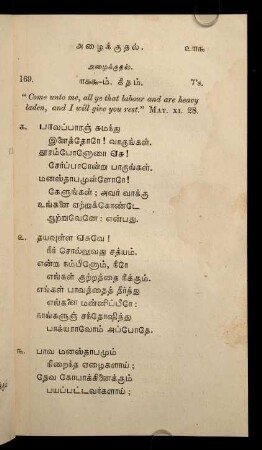 அழைக்குதல்.
அழைக்குதல்.
169. ௧௬௯-ம். கீதம். 7's.
"Come unto me, all ye that labour and are heavy
laden, and I will give you rest." MAT. XI. 28.
௧. பாவப்பாரஞ் சுமந்து
இளைத்தோரே! வாருங்கள்.
தூரம்போனோரை ஏசு!
சேர்ப்பாரென்று பாருங்கள்.
மனஸ்தாபமுள்ளோரே!
கேளுங்கள்; அவர் வாக்கு
உங்களை ஏற்றுக்கொண்டே
ஆற்றுவேனே: என்பது.
௨. தயவுள்ள ஏசுவே!
நீர் சொல்லுவது சத்யம்.
என்று நம்பினோம், நீரே
எங்கள் குற்றத்தை நீக்கும்.
எங்கள் பாவத்தைத் தீர்த்து
எங்களை மன்னிப்பீரே:
நாங்களுஞ் சந்தோஷித்து
பாக்யராவோம் அப்போதே.
௩. பாவ மனஸ்தாபமும்
நிறைந்த ஏழைகளாய்;
தேவ கோபாக்கினைக்கும்
பயப்பட்டவர்களாய்;